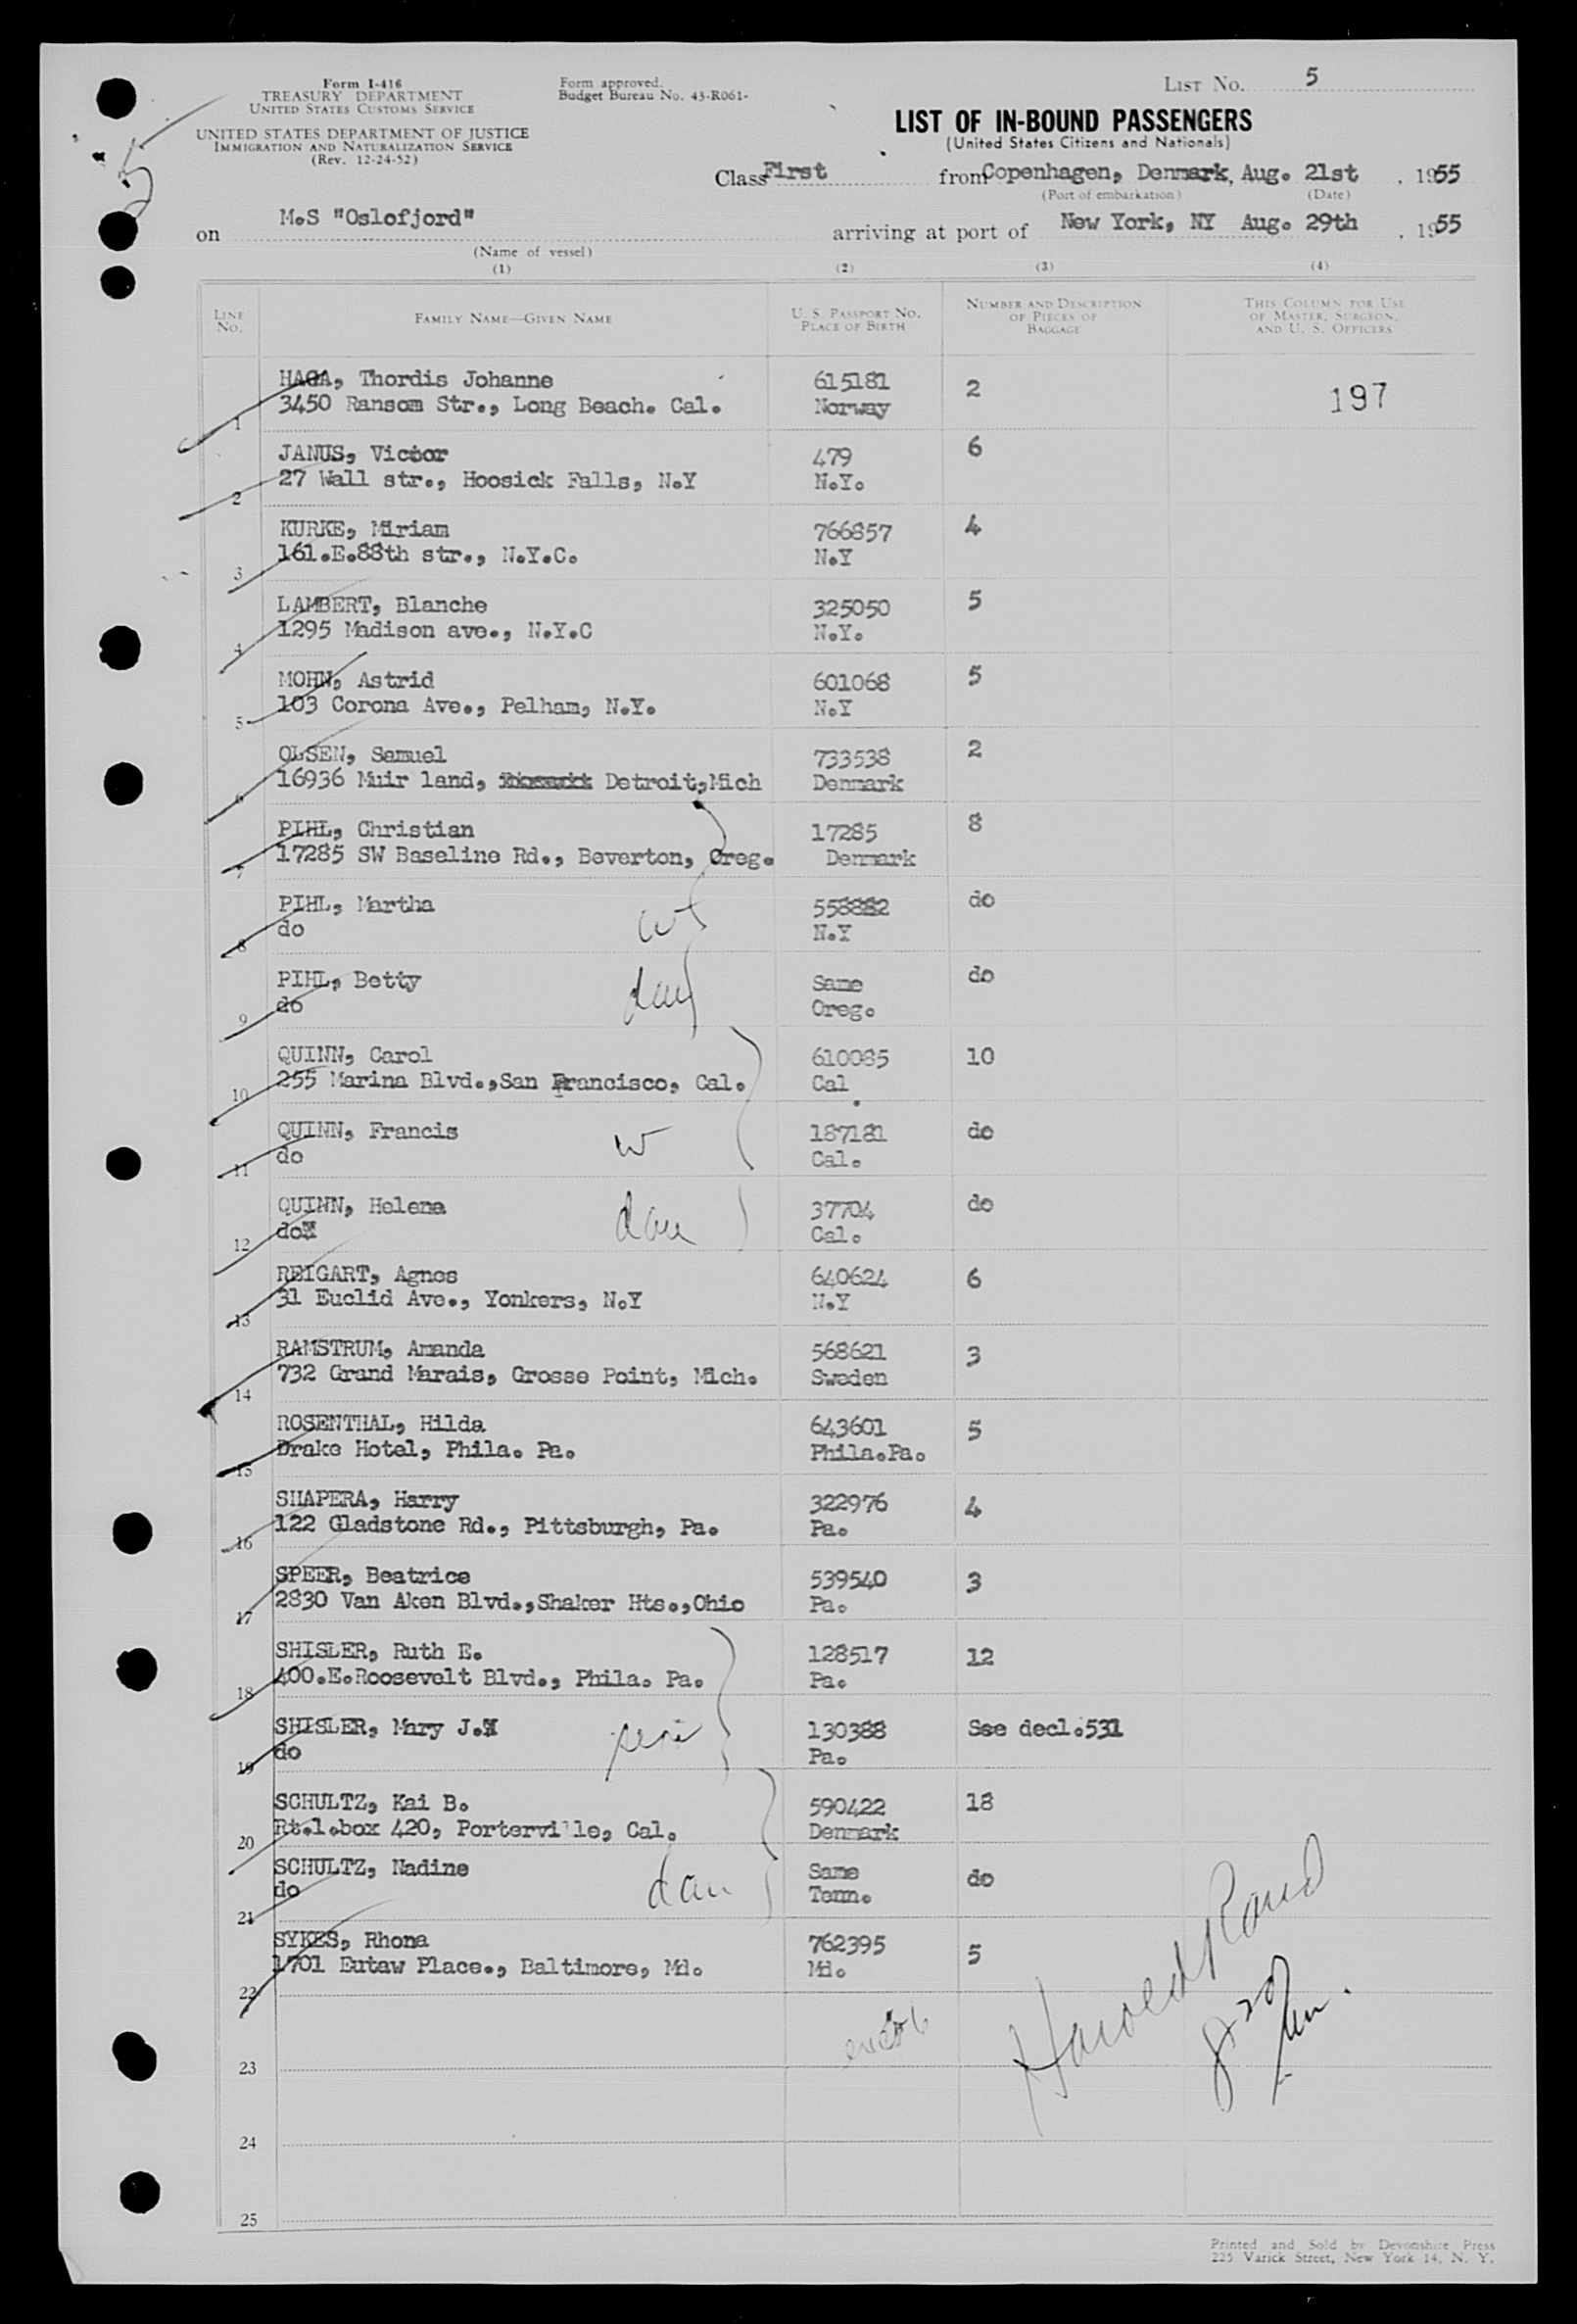 Form I-416
TREASURY DEPARTMENT
UNITED STATES CUSTOMS SERVICE
UNITED STATES DEPARTMENT OF JUSTICE
IMMIGRATION AND NATURALIZATION SERVICE
(Rev. 12-24-52)
Form approved.
Budget Bureau No. 43-R061-
LIST No. 5
LIST OF IN-BOUND PASSENGERS
(United States Citizens and Nationals)
Class First from Copenhagen, Denmark, Aug. 21st, 1955
(Port of embarkation) (Date)
on M.S "Oslofjord" arriving at port of New York, NY Aug. 29th, 1955
(Name of vessel)
(1) (2) (3) (4)
LINE No. FAMILY NAME—GIVEN NAME U. S. PASSPORT NO. PLACE OF BIRTH NUMBER AND DESCRIPTION OF PIECES OF BAGGAGE THIS COLUMN FOR USE OF MASTER, SURGEON, AND U. S. OFFICERS
HAGA, Thordis Johanne 615181 2 197
1 3450 Ransom Str., Long Beach. Cal. Norway
JANUS, Victor 479 6
2 27 Wall str., Hoosick Falls, N.Y N.Y.
KURKE, Miriam 766857 4
3 161.E.88th str., N.Y.C. N.Y
LAMBERT, Blanche 325050 5
4 1295 Madison ave., N.Y.C N.Y.
MOHN, Astrid 601068 5
5 103 Corona Ave., Pelham, N.Y. N.Y
OLSEN, Samuel 733538 2
6 16936 Muir land, Detroit,Mich Denmark
PIHL, Christian 17285 8
7 17285 SW Baseline Rd., Beverton, Oreg. Denmark
PIHL, Martha 558882 do
8 do N.Y
PIHL, Betty dau Same do
9 do Oreg.
QUINN, Carol 610085 10
10 255 Marina Blvd.,San Francisco, Cal. Cal
QUINN, Francis w 187181 do
11 do Cal.
QUINN, Helena dau 37704 do
12 do Cal.
REIGART, Agnes 640624 6
13 31 Euclid Ave., Yonkers, N.Y N.Y
RAMSTRUM, Amanda 568621 3
14 732 Grand Marais, Grosse Point, Mich. Sweden
ROSENTHAL, Hilda 643601 5
15 Drake Hotel, Phila. Pa. Phila.Pa.
SHAPERA, Harry 322976 4
16 122 Gladstone Rd., Pittsburgh, Pa. Pa.
SPEER, Beatrice 539540 3
17 2830 Van Aken Blvd.,Shaker Hts.,Ohio Pa.
SHISLER, Ruth E. 128517 12
18 400.E.Roosevelt Blvd., Phila. Pa. Pa.
SHISLER, Mary J. 130388 Sse decl.531
19 do Pa.
SCHULTZ, Kai B. 590422 18
20 Rt.1.box 420, Porterville, Cal. Denmark
SCHULTZ, Nadine dau Same do
21 do Tenn.
SYKES, Rhona 762395 5
22 1701 Eutaw Place., Baltimore, Md. Md.
23
24
25
Printed and Sold by Devonshire Press
225 Varick Street, New York 14, N. Y.